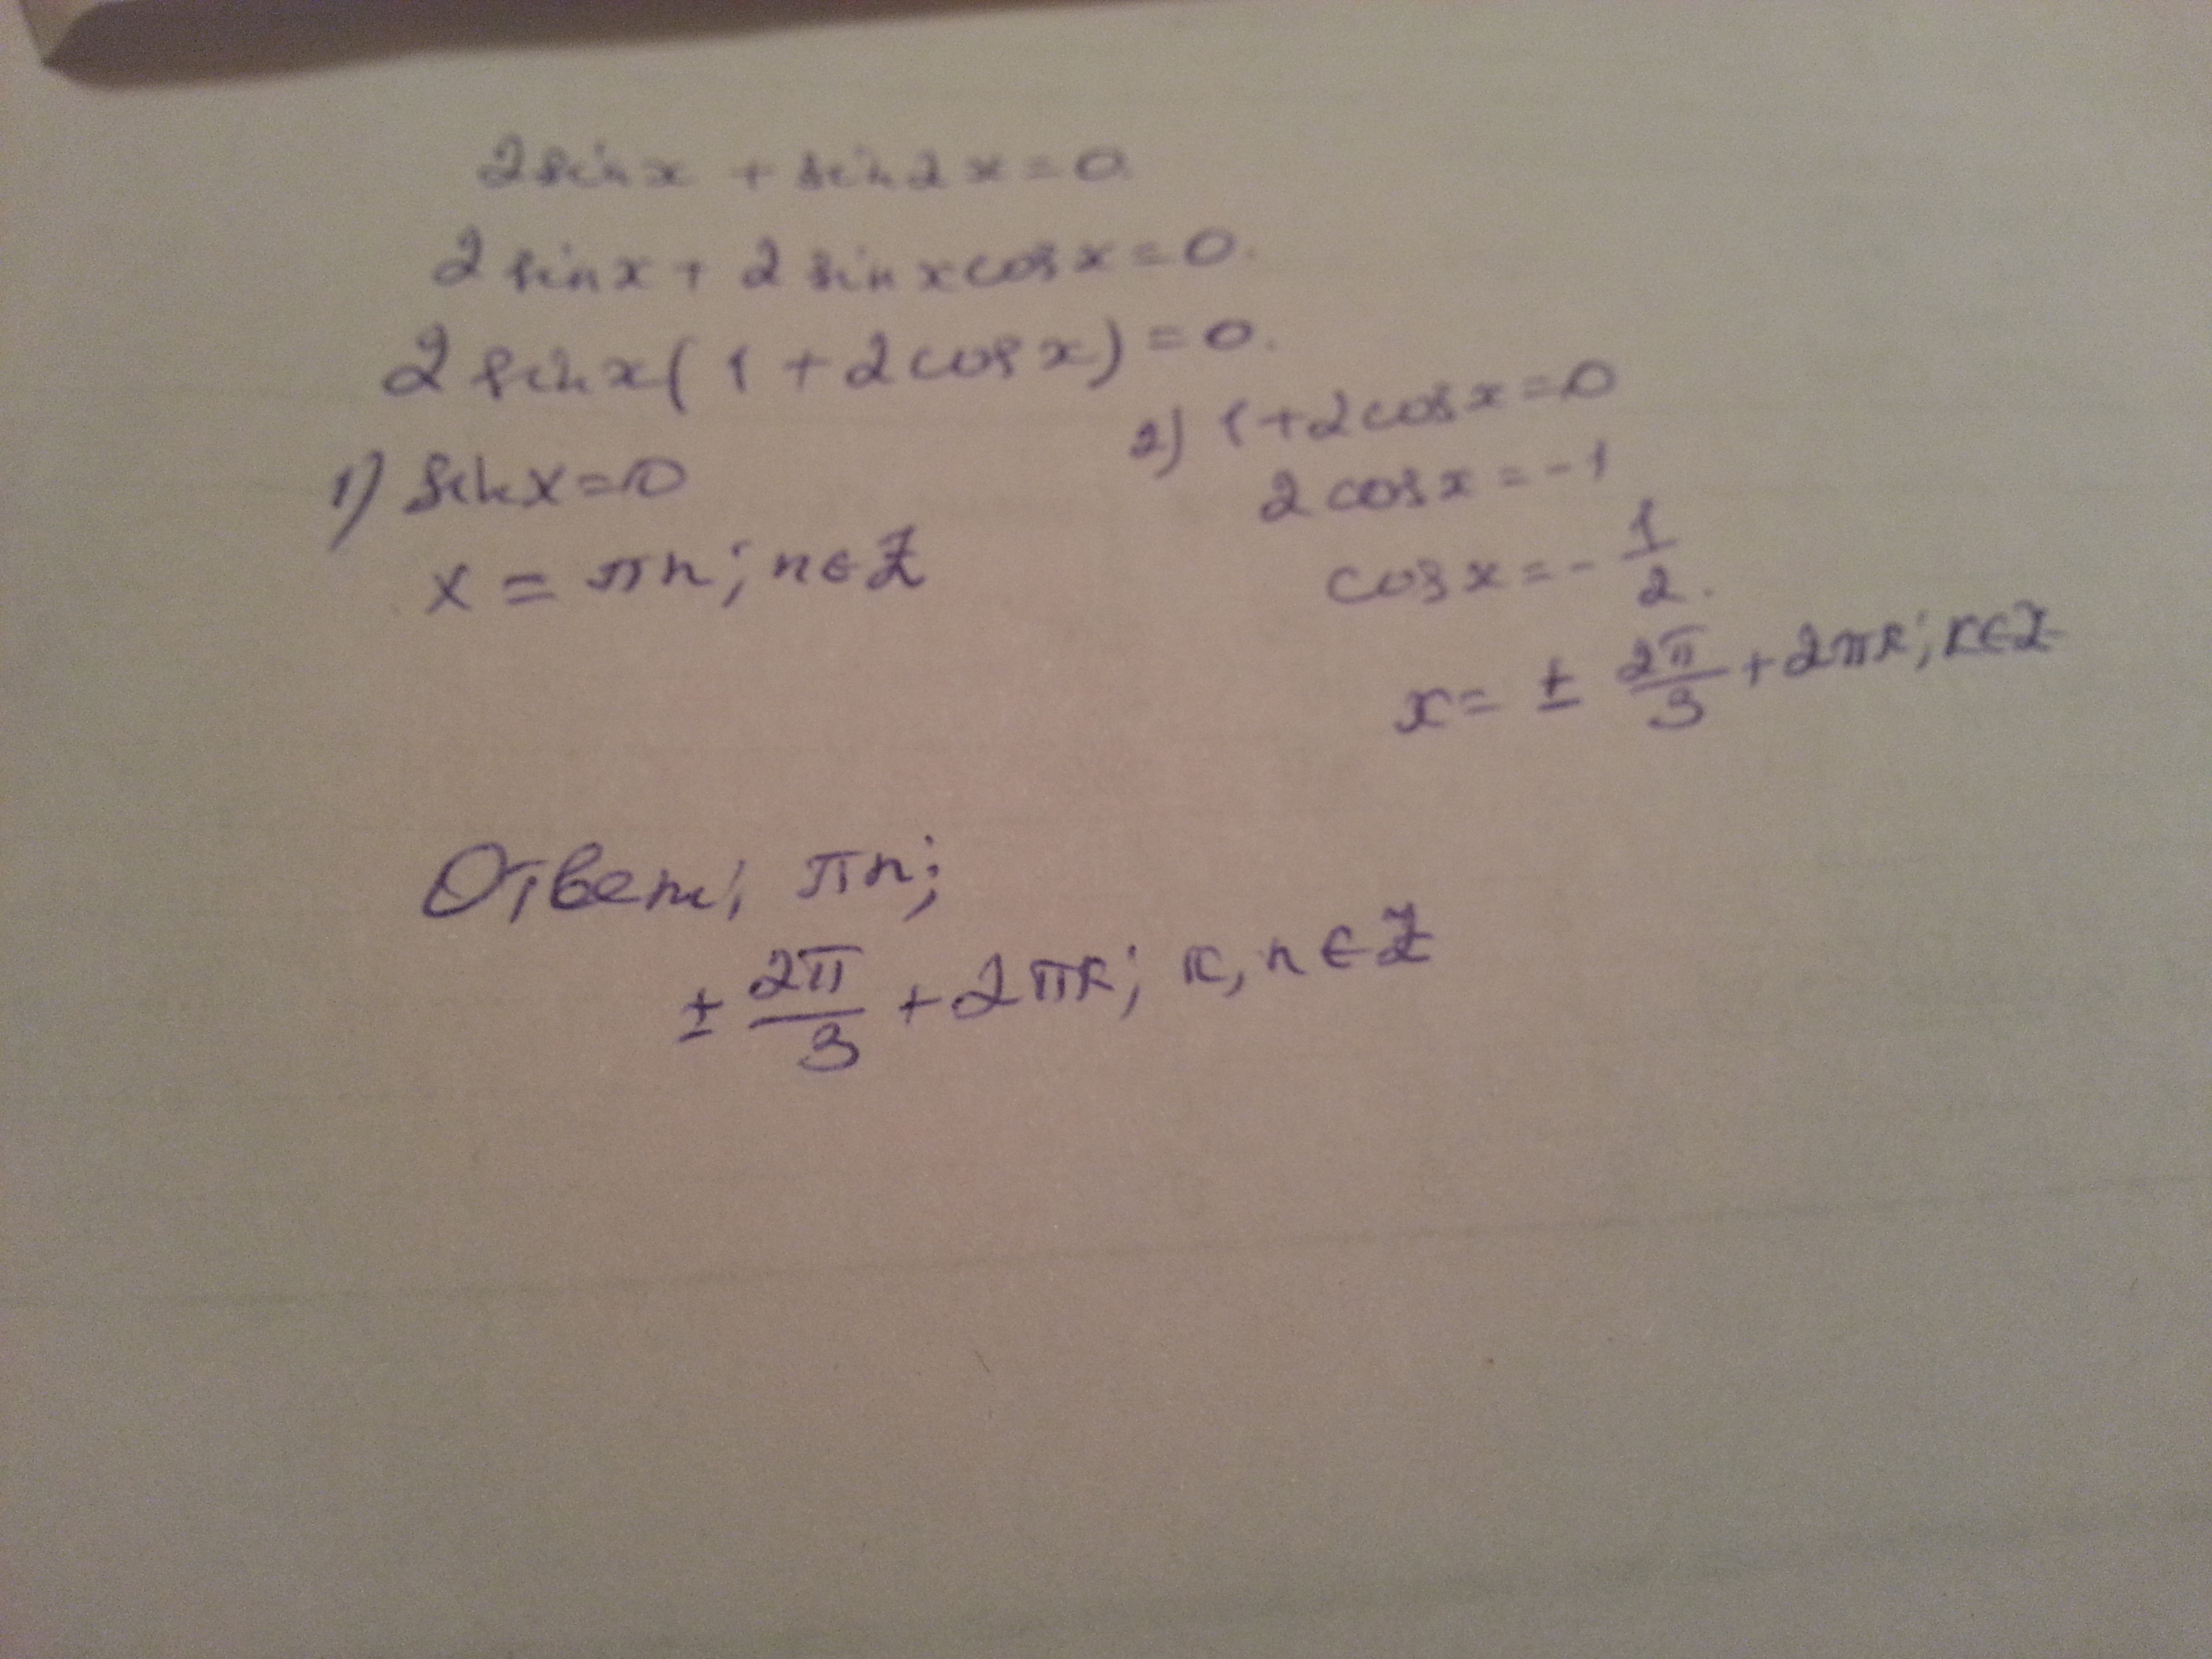 2 sin x + sin 2x = 0
2 sin x + 2 sin x cos x = 0.
2 sin x (1 + 2 cos x) = 0.
1) sin x = 0
x = πn; n ∈ Z
2) 1 + 2 cos x = 0
2 cos x = -1
cos x = - 1/2.
x = ± 2π/3 + 2πк; к ∈ Z
Ответ: πn;
± 2π/3 + 2πк; к, n ∈ Z